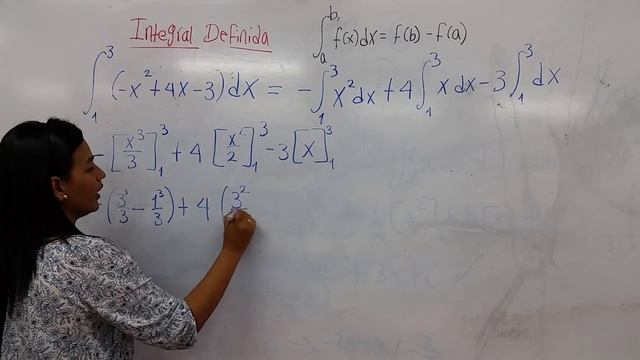 Integral Definida
∫ₐᵇ f(x)dx = f(b) - f(a)
∫₁³ (-x² + 4x - 3) dx = - ∫₁³ x² dx + 4 ∫₁³ x dx - 3 ∫₁³ dx
- [x³/3]₁³ + 4 [x²/2]₁³ - 3 [x]₁³
- (3³/3 - 1³/3) + 4 (3²